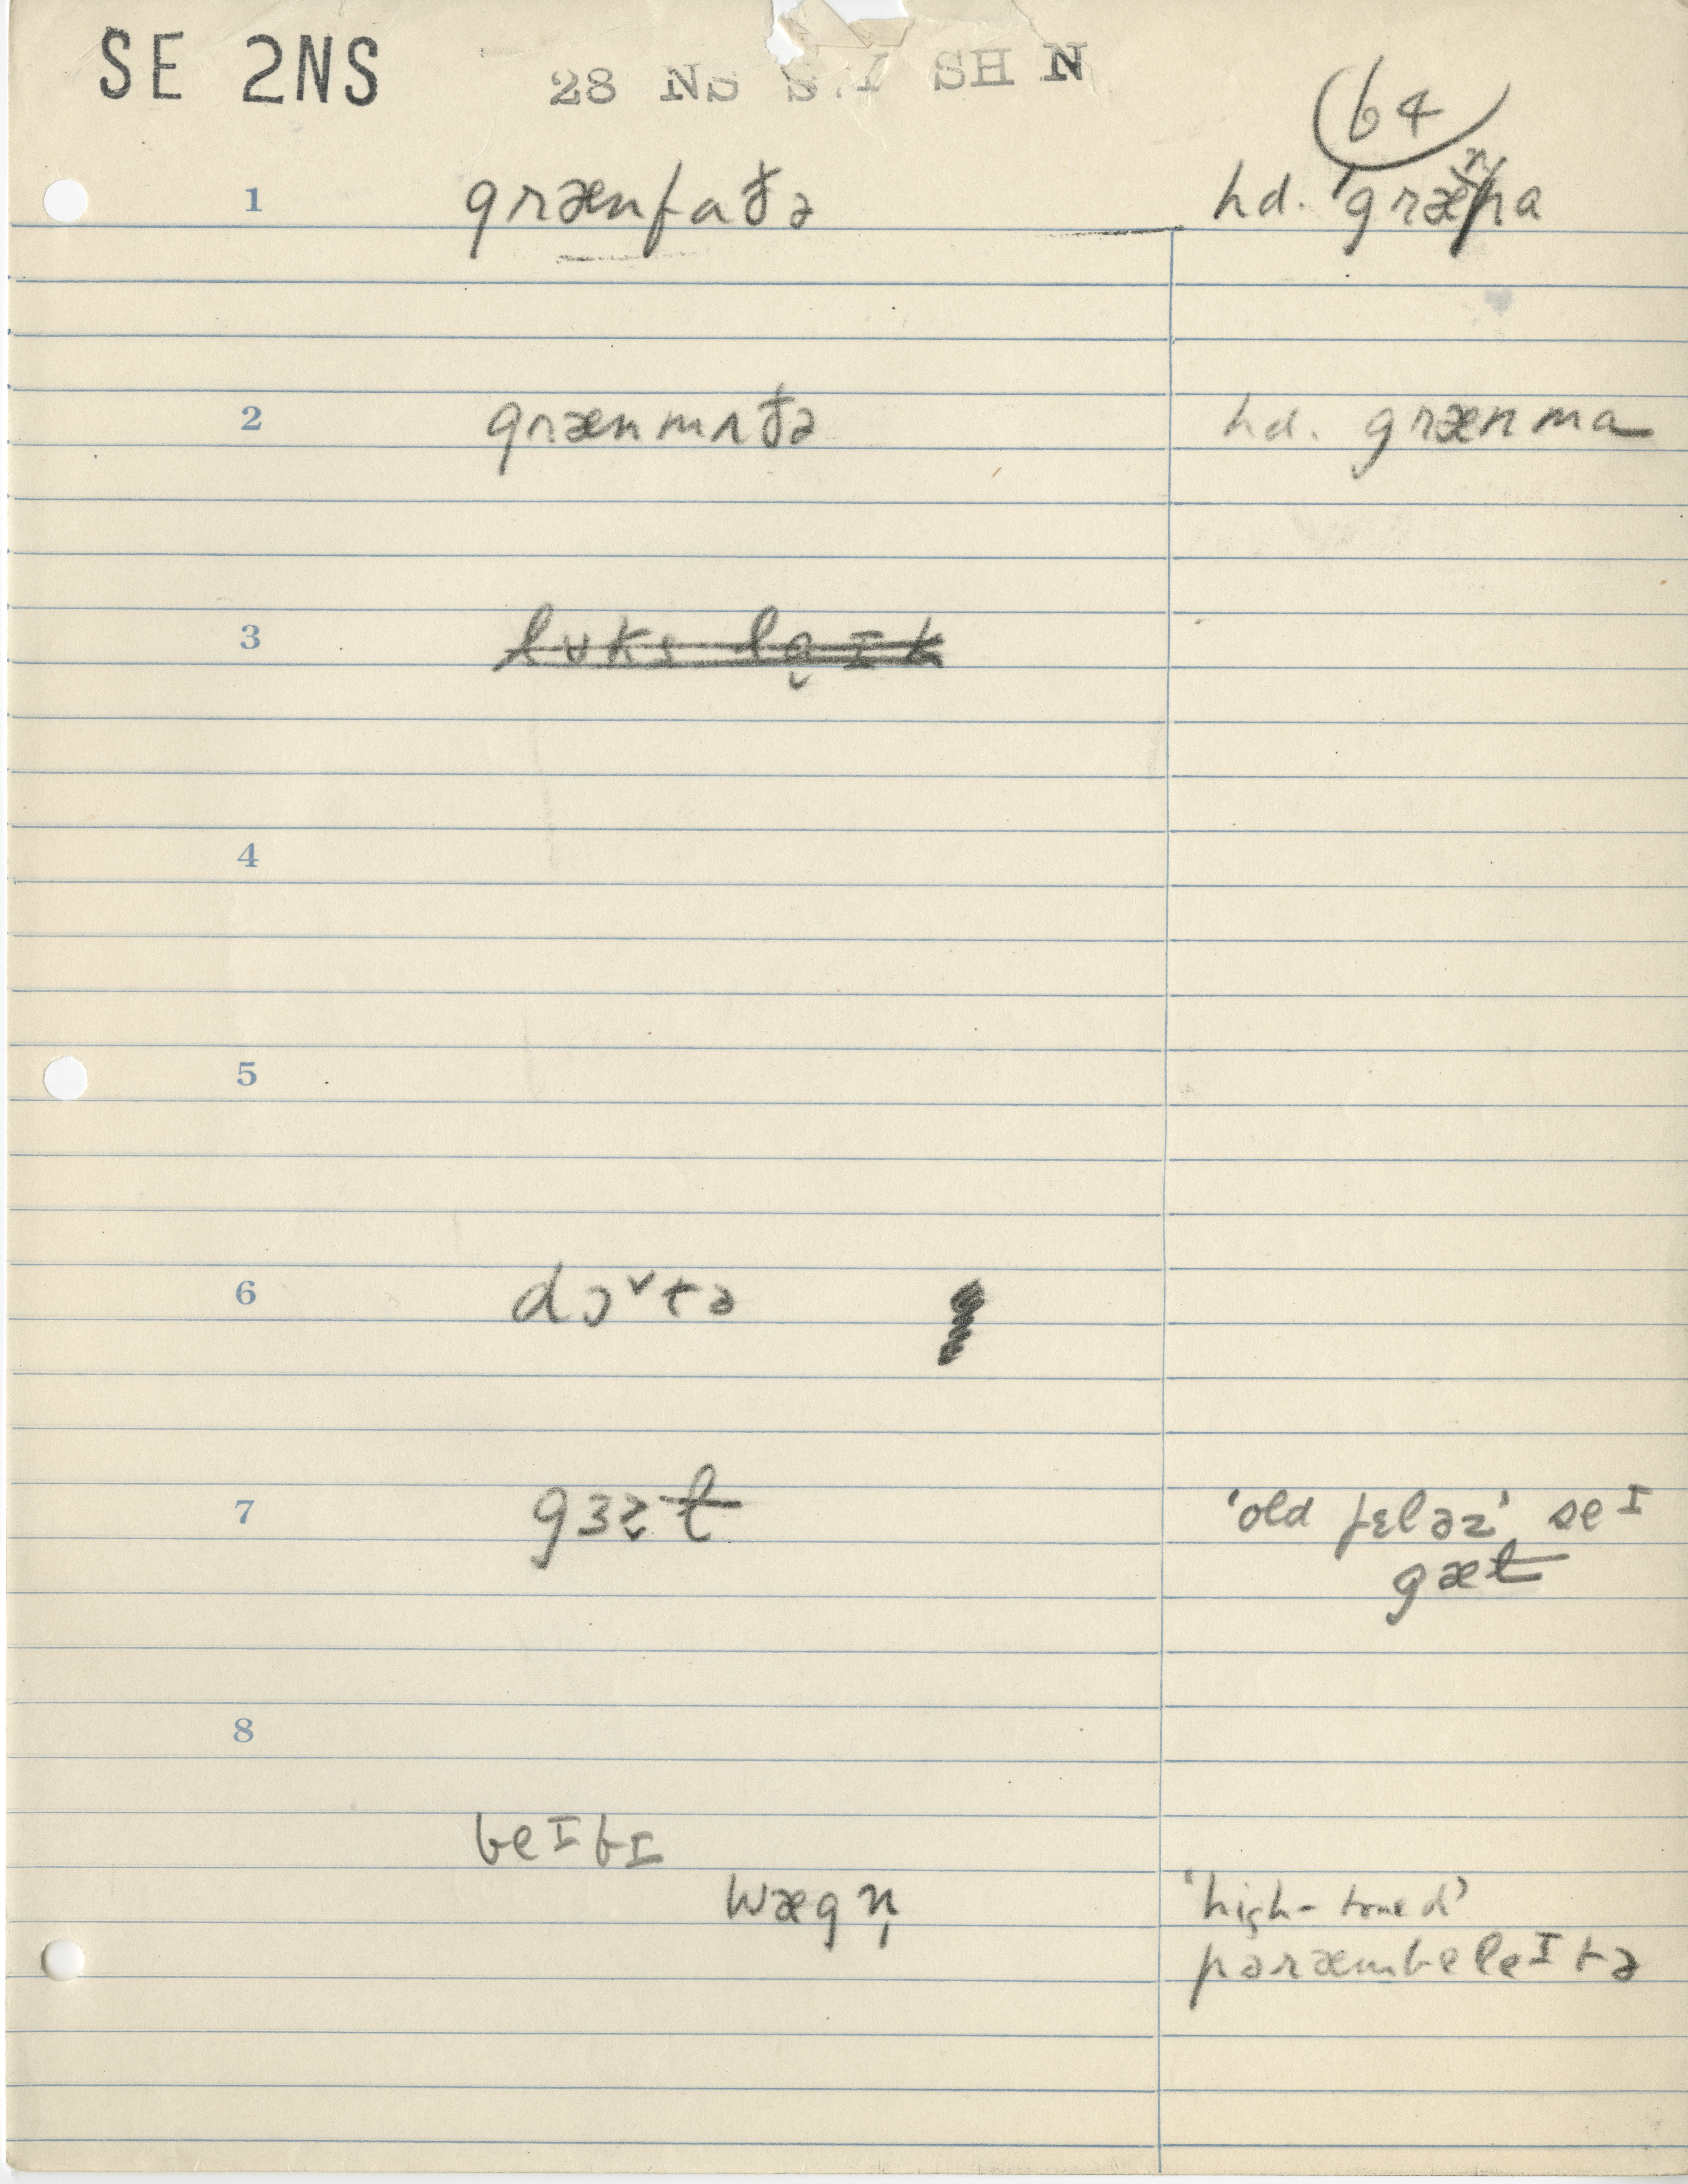 SE 2NS 28 NS SH N
64
1 grænfaðə hd. 'grænpa
2 grænmʌðə hd. grænma
3 lʊks laɪk
4
5
6 dɔ˅tə
7 gɜɚt 'old fɛləz' seɪ
gæt
8
beɪbɪ
wægn̩ 'high-toned'
pəræmbəleɪtə